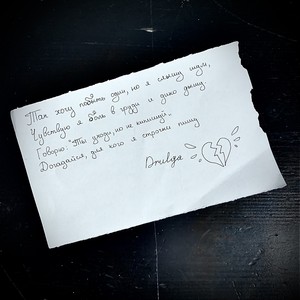 Так хочу побыть один, но я слышу шум,
Чувствую я боль в груди и дико дышу.
Говорю: "Ты уходи, но не кипишуй".
Догадайся, для кого я строчки пишу
Druilya